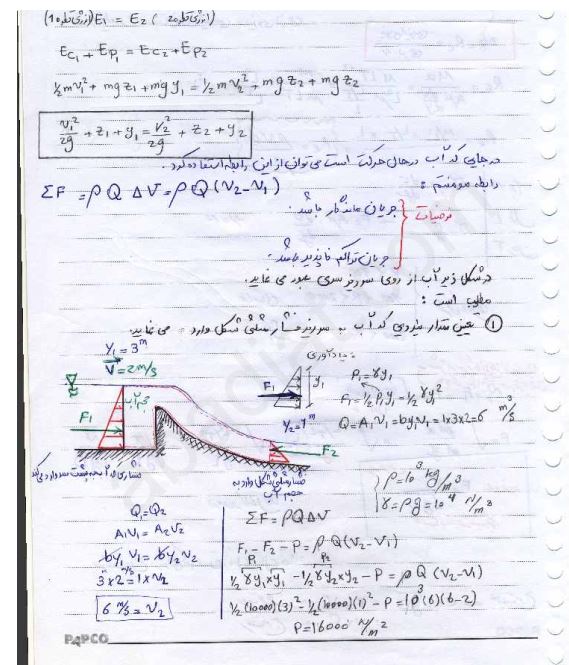 (انرژی نقطه 1) E₁ = E₂ (انرژی نقطه 2)
Ec₁ + Ep₁ = Ec₂ + Ep₂
½mv₁² + mgz₁ + mgy₁ = ½mv₂² + mgz₂ + mgz₂
v₁²/2g + z₁ + y₁ = v₂²/2g + z₂ + y₂
در جایی که آب در حال حرکت است می توان از این رابطه استفاده کرد.
رابطه مومنتم :
ΣF = ρQΔV = ρQ(V₂-V₁)
فرضیات { جریان ماندگار باشد.
جریان تراکم ناپذیر باشد.
در شکل زیر آب از روی سرریز سدی عبور می نماید.
مطلوب است :
① تعیین مقدار نیرویی که آب به سرریز وارد می نماید.
y₁ = 3ᵐ
V = 2m/s
یادآوری :
F₁
y₁
P₁ = γy₁
F₁ = ½P₁y₁ = ½γy₁²
Q = A₁V₁ = by₁v₁ = 1×3×2 = 6 m³/s
y₂ = 1ᵐ
F₁
F₂
ρ = 10³ kg/m³
γ = ρg = 10⁴ N/m³
Q₁ = Q₂
A₁V₁ = A₂V₂
by₁v₁ = by₂v₂
3×2 = 1×v₂
6 m/s = v₂
ΣF = ρQΔV
F₁ - F₂ - P = ρ·Q(V₂-V₁)
P₁ P₂
½γy₁×y₁ - ½γy₂×y₂ - P = ρQ(v₂-v₁)
½(10000)(3)² - ½(10000)(1)² - P = 10³(6)(6-2)
P = 16000 N/m²
PAPCO